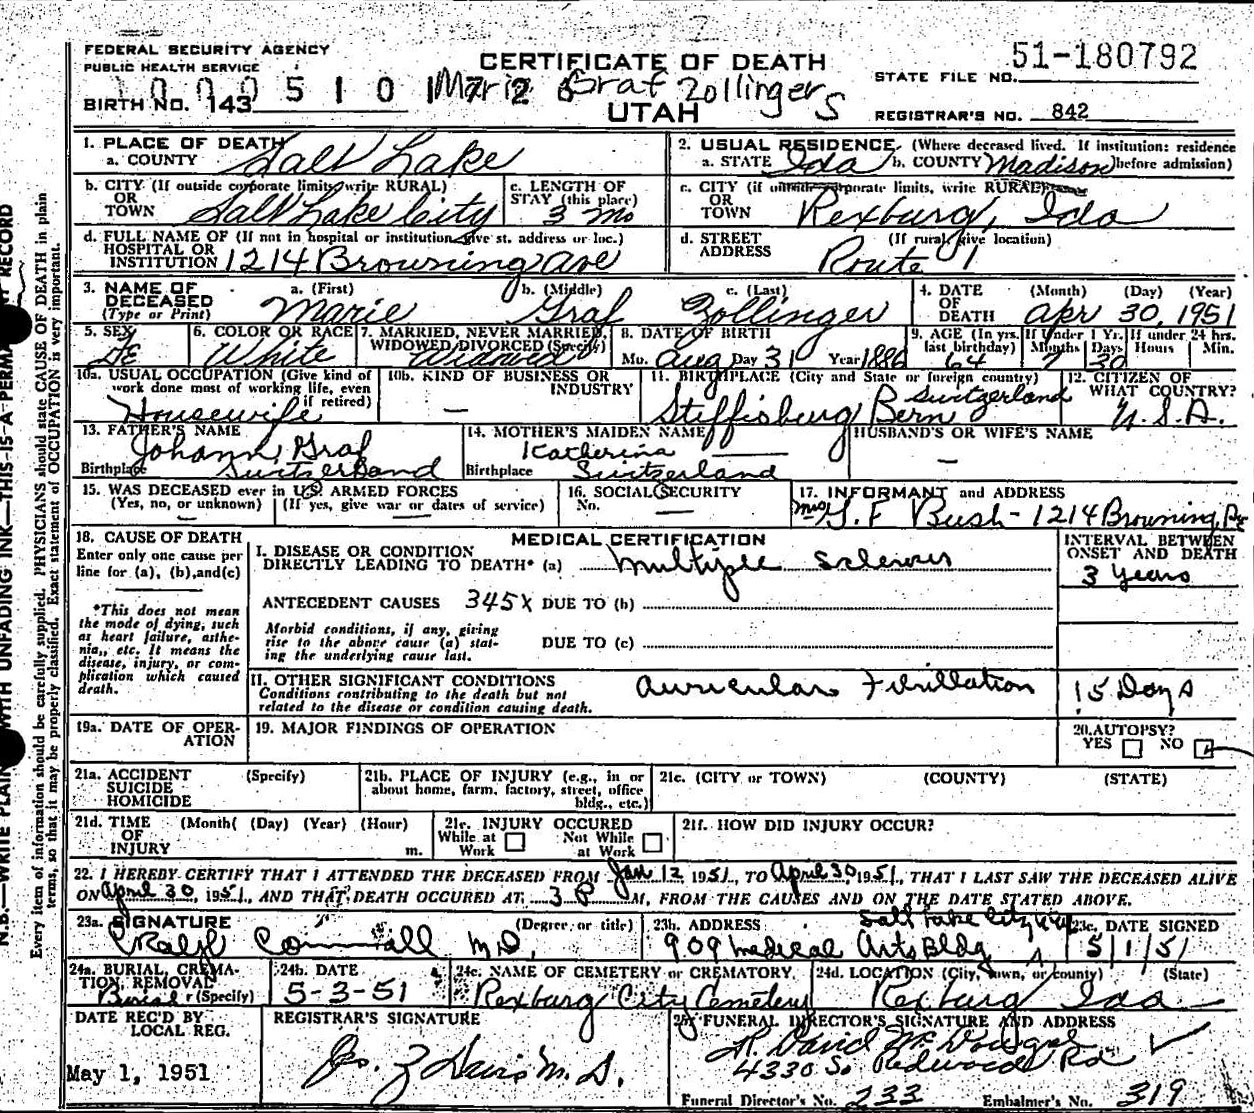 FEDERAL SECURITY AGENCY
PUBLIC HEALTH SERVICE
BIRTH NO. 143
CERTIFICATE OF DEATH
Marie Graf Zollingers
UTAH
STATE FILE NO. 51-180792
REGISTRAR'S NO. 842
1. PLACE OF DEATH
a. COUNTY Salt Lake
2. USUAL RESIDENCE. (Where deceased lived. If institution: residence before admission)
a. STATE Ida b. COUNTY Madison
b. CITY (If outside corporate limits, write RURAL) OR TOWN Salt Lake City
c. LENGTH OF STAY (this place) 3 mo
c. CITY (if outside corporate limits, write RURAL) OR TOWN Rexburg, Ida
d. FULL NAME OF (If not in hospital or institution, give st. address or loc.) HOSPITAL OR INSTITUTION 1214 Browning Ave
d. STREET ADDRESS (If rural, give location) Route 1
3. NAME OF DECEASED (Type or Print) a. (First) Marie b. (Middle) Graf c. (Last) Zollinger
4. DATE OF DEATH (Month) (Day) (Year) Apr 30, 1951
5. SEX Fe
6. COLOR OR RACE White
7. MARRIED, NEVER MARRIED, WIDOWED, DIVORCED (Specify) Widowed
8. DATE OF BIRTH Mo. Aug Day 31 Year 1886
9. AGE (In yrs. last birthday) 64 If Under 1 Yr. Months 7 Days 30 If under 24 hrs. Hours Min.
10a. USUAL OCCUPATION (Give kind of work done most of working life, even if retired) Housewife
10b. KIND OF BUSINESS OR INDUSTRY —
11. BIRTHPLACE (City and State or foreign country) Steffisburg Bern Switzerland
12. CITIZEN OF WHAT COUNTRY? U.S.A.
13. FATHER'S NAME Johann Graf
Birthplace Switzerland
14. MOTHER'S MAIDEN NAME Katherina —
Birthplace Switzerland
HUSBAND'S OR WIFE'S NAME —
15. WAS DECEASED ever in U.S. ARMED FORCES (Yes, no, or unknown) — (If yes, give war or dates of service) —
16. SOCIAL SECURITY No. —
17. INFORMANT and ADDRESS Mrs G. F Bush - 1214 Browning Ave
18. CAUSE OF DEATH
Enter only one cause per line for (a), (b), and (c)
*This does not mean the mode of dying, such as heart failure, asthenia, etc. It means the disease, injury, or complication which caused death.
MEDICAL CERTIFICATION
I. DISEASE OR CONDITION DIRECTLY LEADING TO DEATH* (a) Multiple Sclerosis
INTERVAL BETWEEN ONSET AND DEATH 3 Years
ANTECEDENT CAUSES 345X DUE TO (b)
Morbid conditions, if any, giving rise to the above cause (a) stating the underlying cause last. DUE TO (c)
II. OTHER SIGNIFICANT CONDITIONS Conditions contributing to the death but not related to the disease or condition causing death. Auricular Fibrillation 15 Days
19a. DATE OF OPERATION
19. MAJOR FINDINGS OF OPERATION
20. AUTOPSY? YES NO
21a. ACCIDENT SUICIDE HOMICIDE (Specify)
21b. PLACE OF INJURY (e.g., in or about home, farm, factory, street, office bldg., etc.)
21c. (CITY or TOWN) (COUNTY) (STATE)
21d. TIME OF INJURY (Month( (Day) (Year) (Hour) m.
21e. INJURY OCCURED While at Work Not While at Work
21f. HOW DID INJURY OCCUR?
22. I HEREBY CERTIFY THAT I ATTENDED THE DECEASED FROM Jan 12 1951, TO April 30, 1951, THAT I LAST SAW THE DECEASED ALIVE
ON April 30, 1951, AND THAT DEATH OCCURED AT 3 P M, FROM THE CAUSES AND ON THE DATE STATED ABOVE.
23a. SIGNATURE (Degree or title) Ralph Cornwall M.D.
23b. ADDRESS 909 Medical Arts Bldg Salt Lake City
23c. DATE SIGNED 5/1/51
24a. BURIAL, CREMATION, REMOVAL (Specify) Burial
24b. DATE 5-3-51
24c. NAME OF CEMETERY or CREMATORY Rexburg City Cemetery
24d. LOCATION (City, town, or county) (State) Rexburg Ida
DATE REC'D BY LOCAL REG. May 1, 1951
REGISTRAR'S SIGNATURE M.D.
25. FUNERAL DIRECTOR'S SIGNATURE AND ADDRESS
David McDougal
4330 So. Redwood Rd
Funeral Director's No. 233 Embalmer's No. 319
N.B.—WRITE PLAIN WITH UNFADING INK—THIS IS A PERMA RECORD
Every item of information should be carefully supplied. PHYSICIANS should state CAUSE OF DEATH in plain terms, so that it may be properly classified. Exact statement of OCCUPATION is very important.